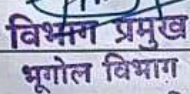 विभाग प्रमुख
भूगोल विभाग